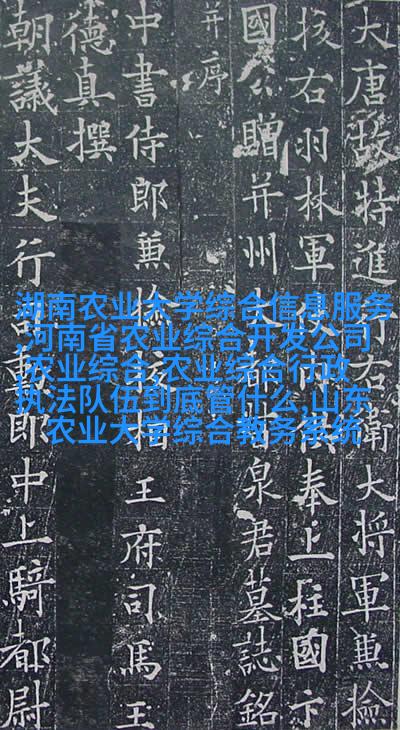 大唐故特進行右衛大將軍兼檢
挍右羽林軍仗內供奉上柱國卞
國公贈并州大都督泉君墓誌銘
并序
中書侍郎兼檢挍相王府司馬王
德真撰
朝議大夫行司勳郎中上騎都尉
湖南农业大学综合信息服务
,河南省农业综合开发公司
,农业综合,农业综合行政
执法队伍到底管什么,山东
农业大学综合教务系统